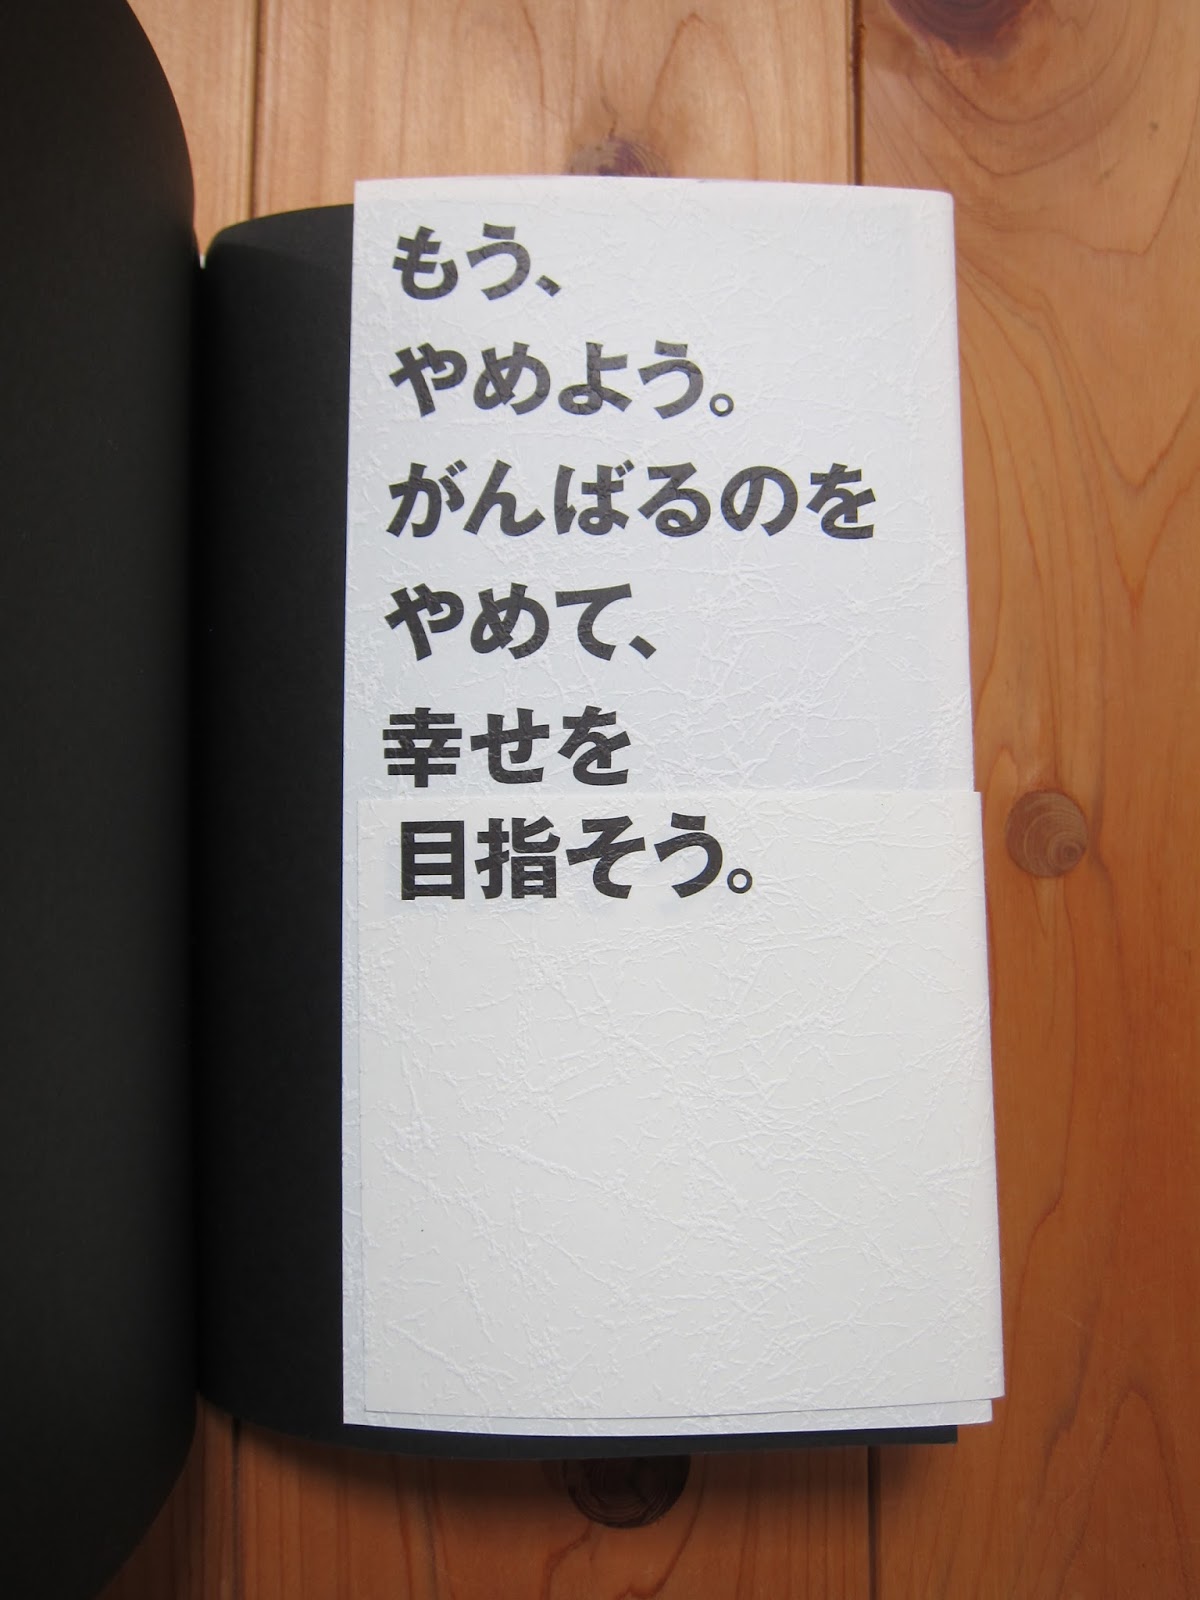 もう、
やめよう。
がんばるのを
やめて、
幸せを
目指そう。